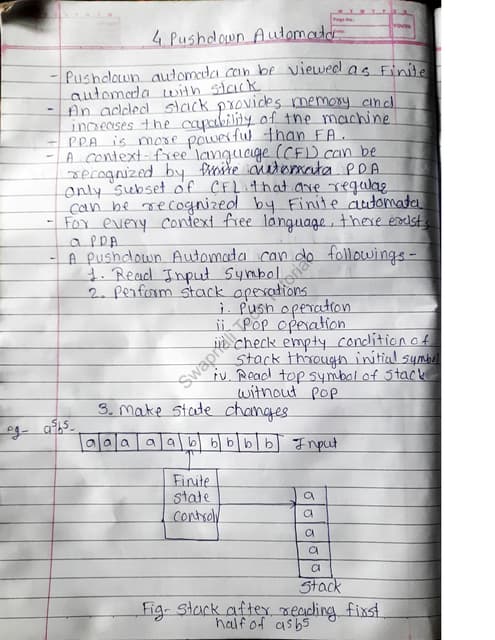 4 Pushdown Automata
- Pushdown automata can be viewed as Finite
automata with stack
- An added stack provides memory and
increases the capability of the machine
- PDA is more powerful than FA.
- A context-free language (CFL) can be
recognized by finite automata PDA
only subset of CFL that are regular
can be recognized by Finite automata.
- For every context free language, there exists
a PDA
- A pushdown Automata can do followings -
1. Read Input Symbol
2. Perform stack operations
i. Push operation
ii. Pop operation
iii. Check empty condition of
stack through initial symbol
iv. Read top symbol of stack
without pop
3. make state changes
eg- a5b5-
a a a a a b b b b b Input
Finite
state
control
a
a
a
a
a
Stack
Fig- Stack after reading first
half of a5b5
Swapnali